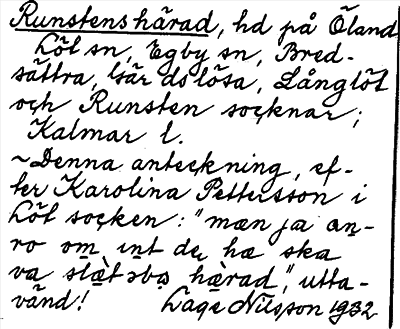 Runstens härad, hd på Öland
Löt sn, Egby sn, Bred-
sättra, Gärdslösa, Långlöt
och Runsten socknar;
Kalmar l.
~Denna anteckning, ef-
ter Karolina Pettersson i
Löt socken: "mæn ja an-
ro om int de hæ ska
va slæt əbo hærad", utta-
vänd! Lage Nilsson 1932